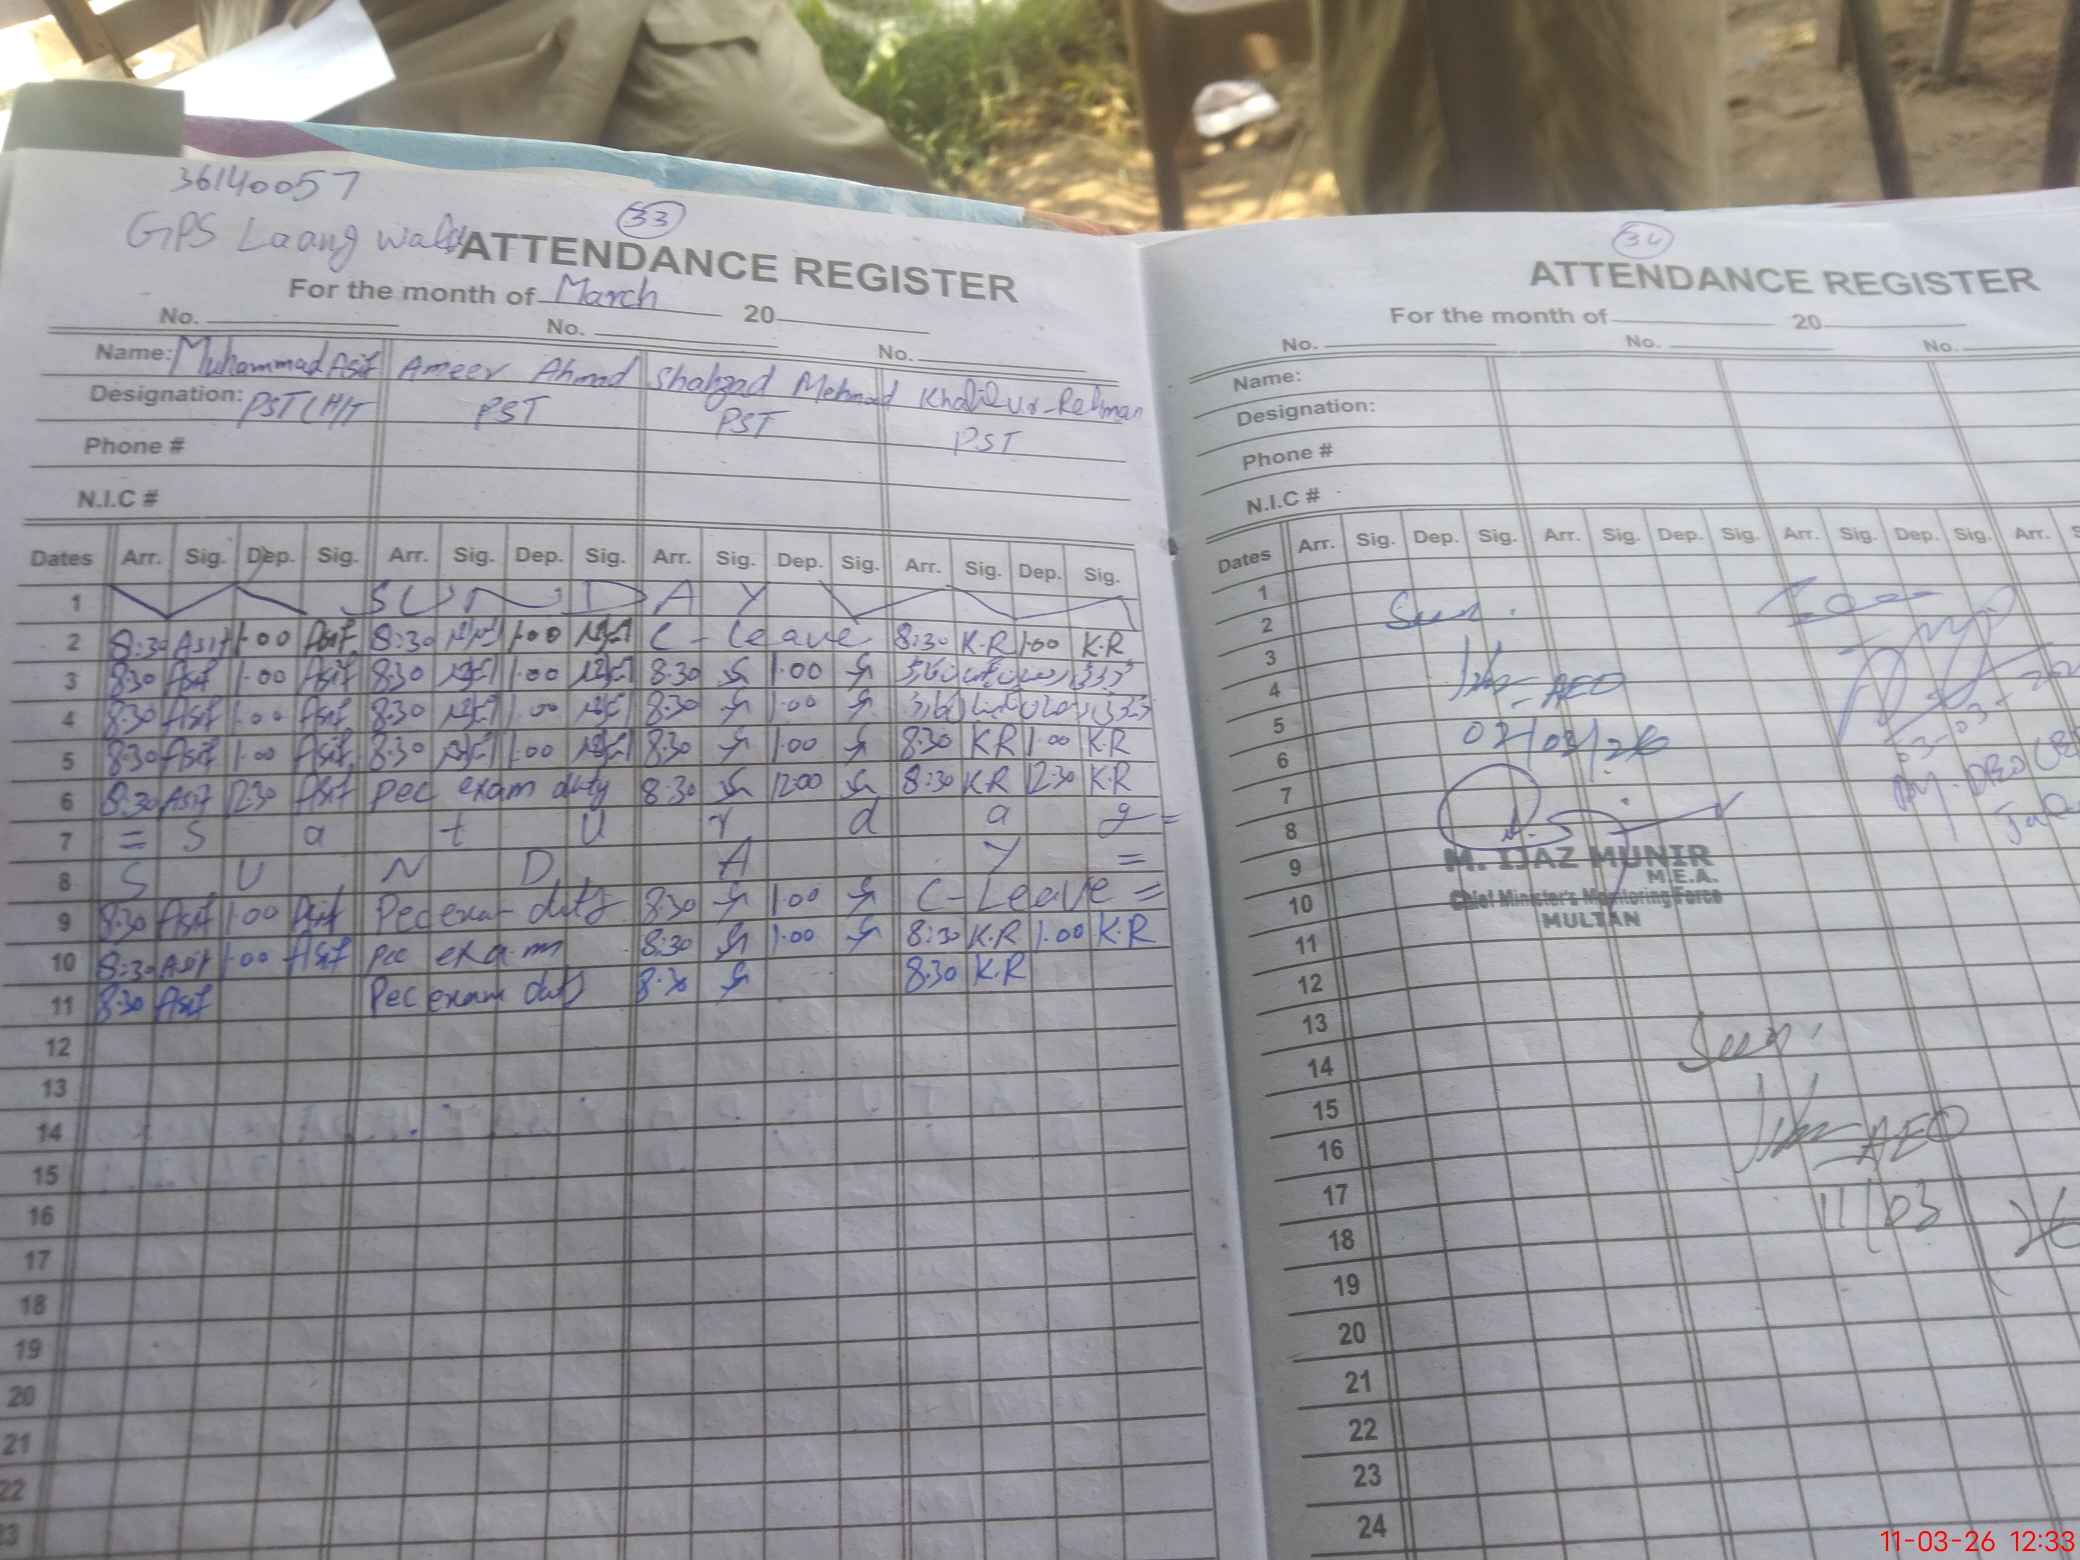 36140057
GPS Laang wala
33
ATTENDANCE REGISTER
For the month of March 20
No. No. No.
Name: Muhammad Asif Ameer Ahmad Shahzad Mehmood Khalil Ur-Rehman
Designation: PST (H/T PST PST PST
Phone #
N.I.C #
Dates Arr. Sig. Dep. Sig. Arr. Sig. Dep. Sig. Arr. Sig. Dep. Sig. Arr. Sig. Dep. Sig.
1 SUNDAY
2 8:30 Asif 1:00 Asif 8:30 1:00 C-Leave 8:30 K.R 1:00 K.R
3 8:30 Asif 1:00 Asif 8:30 1:00 8:30 1:00
4 8:30 Asif 1:00 Asif 8:30 1:00 8:30 1:00
5 8:30 Asif 1:00 Asif 8:30 1:00 8:30 1:00 8:30 KR 1:00 K.R
6 8:30 Asif 12:30 Asif Pec exam duty 8:30 12:00 8:30 KR 12:30 K.R
7 = S a t u r d a y =
8 S U N D A Y =
9 8:30 Asif 1:00 Asif Pec exam duty 8:30 1:00 C-Leave =
10 8:30 Asif 1:00 Asif Pec exam 8:30 1:00 8:30 K.R 1.00 K.R
11 8:30 Asif Pec exam duty 8:30 8:30 K.R
12
13
14
15
16
17
18
19
20
21
22
34
ATTENDANCE REGISTER
For the month of 20
No. No. No.
Name:
Designation:
Phone #
N.I.C #
Dates Arr. Sig. Dep. Sig. Arr. Sig. Dep. Sig. Arr. Sig. Dep. Sig. Arr.
1
2 Seen.
3
4 AEO
5
6
7
8
9 M. IJAZ MUNIR
M.E.A.
10 Chief Minister's Monitoring Force
MULTAN
11
12
13
14 Seen.
15
16 AEO
17
18 11/03 26
19
20
21
22
23
24
11-03-26 12:33